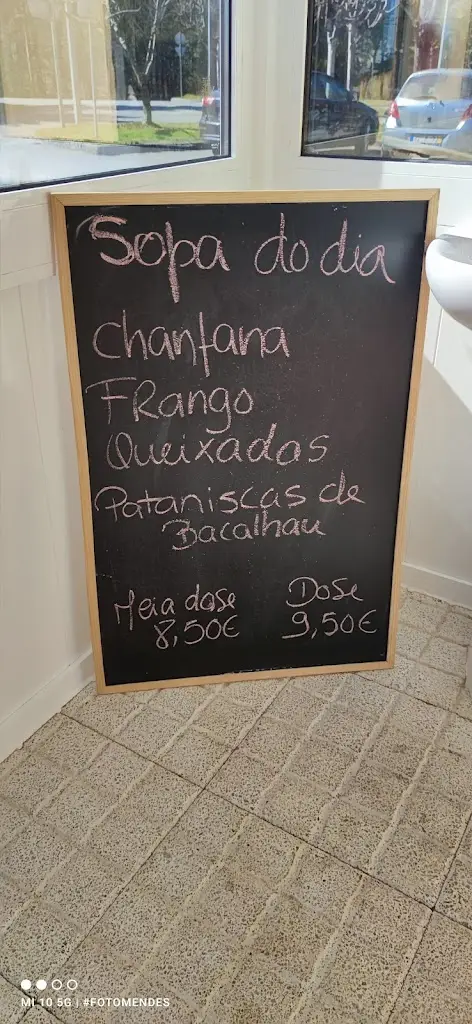 Sopa do dia
Chanfana
FRango
Queixadas
Pataniscas de
Bacalhau
Meia dose Dose
8,50€ 9,50€
MI 10 5G | #FOTOMENDES